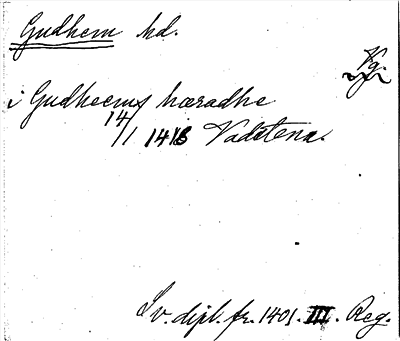 Gudhem hd.
Vg.
i Gudheems hæradhe
14/1 1418 Vadstena.
Sv. dipl. fr. 1401. III. Reg.